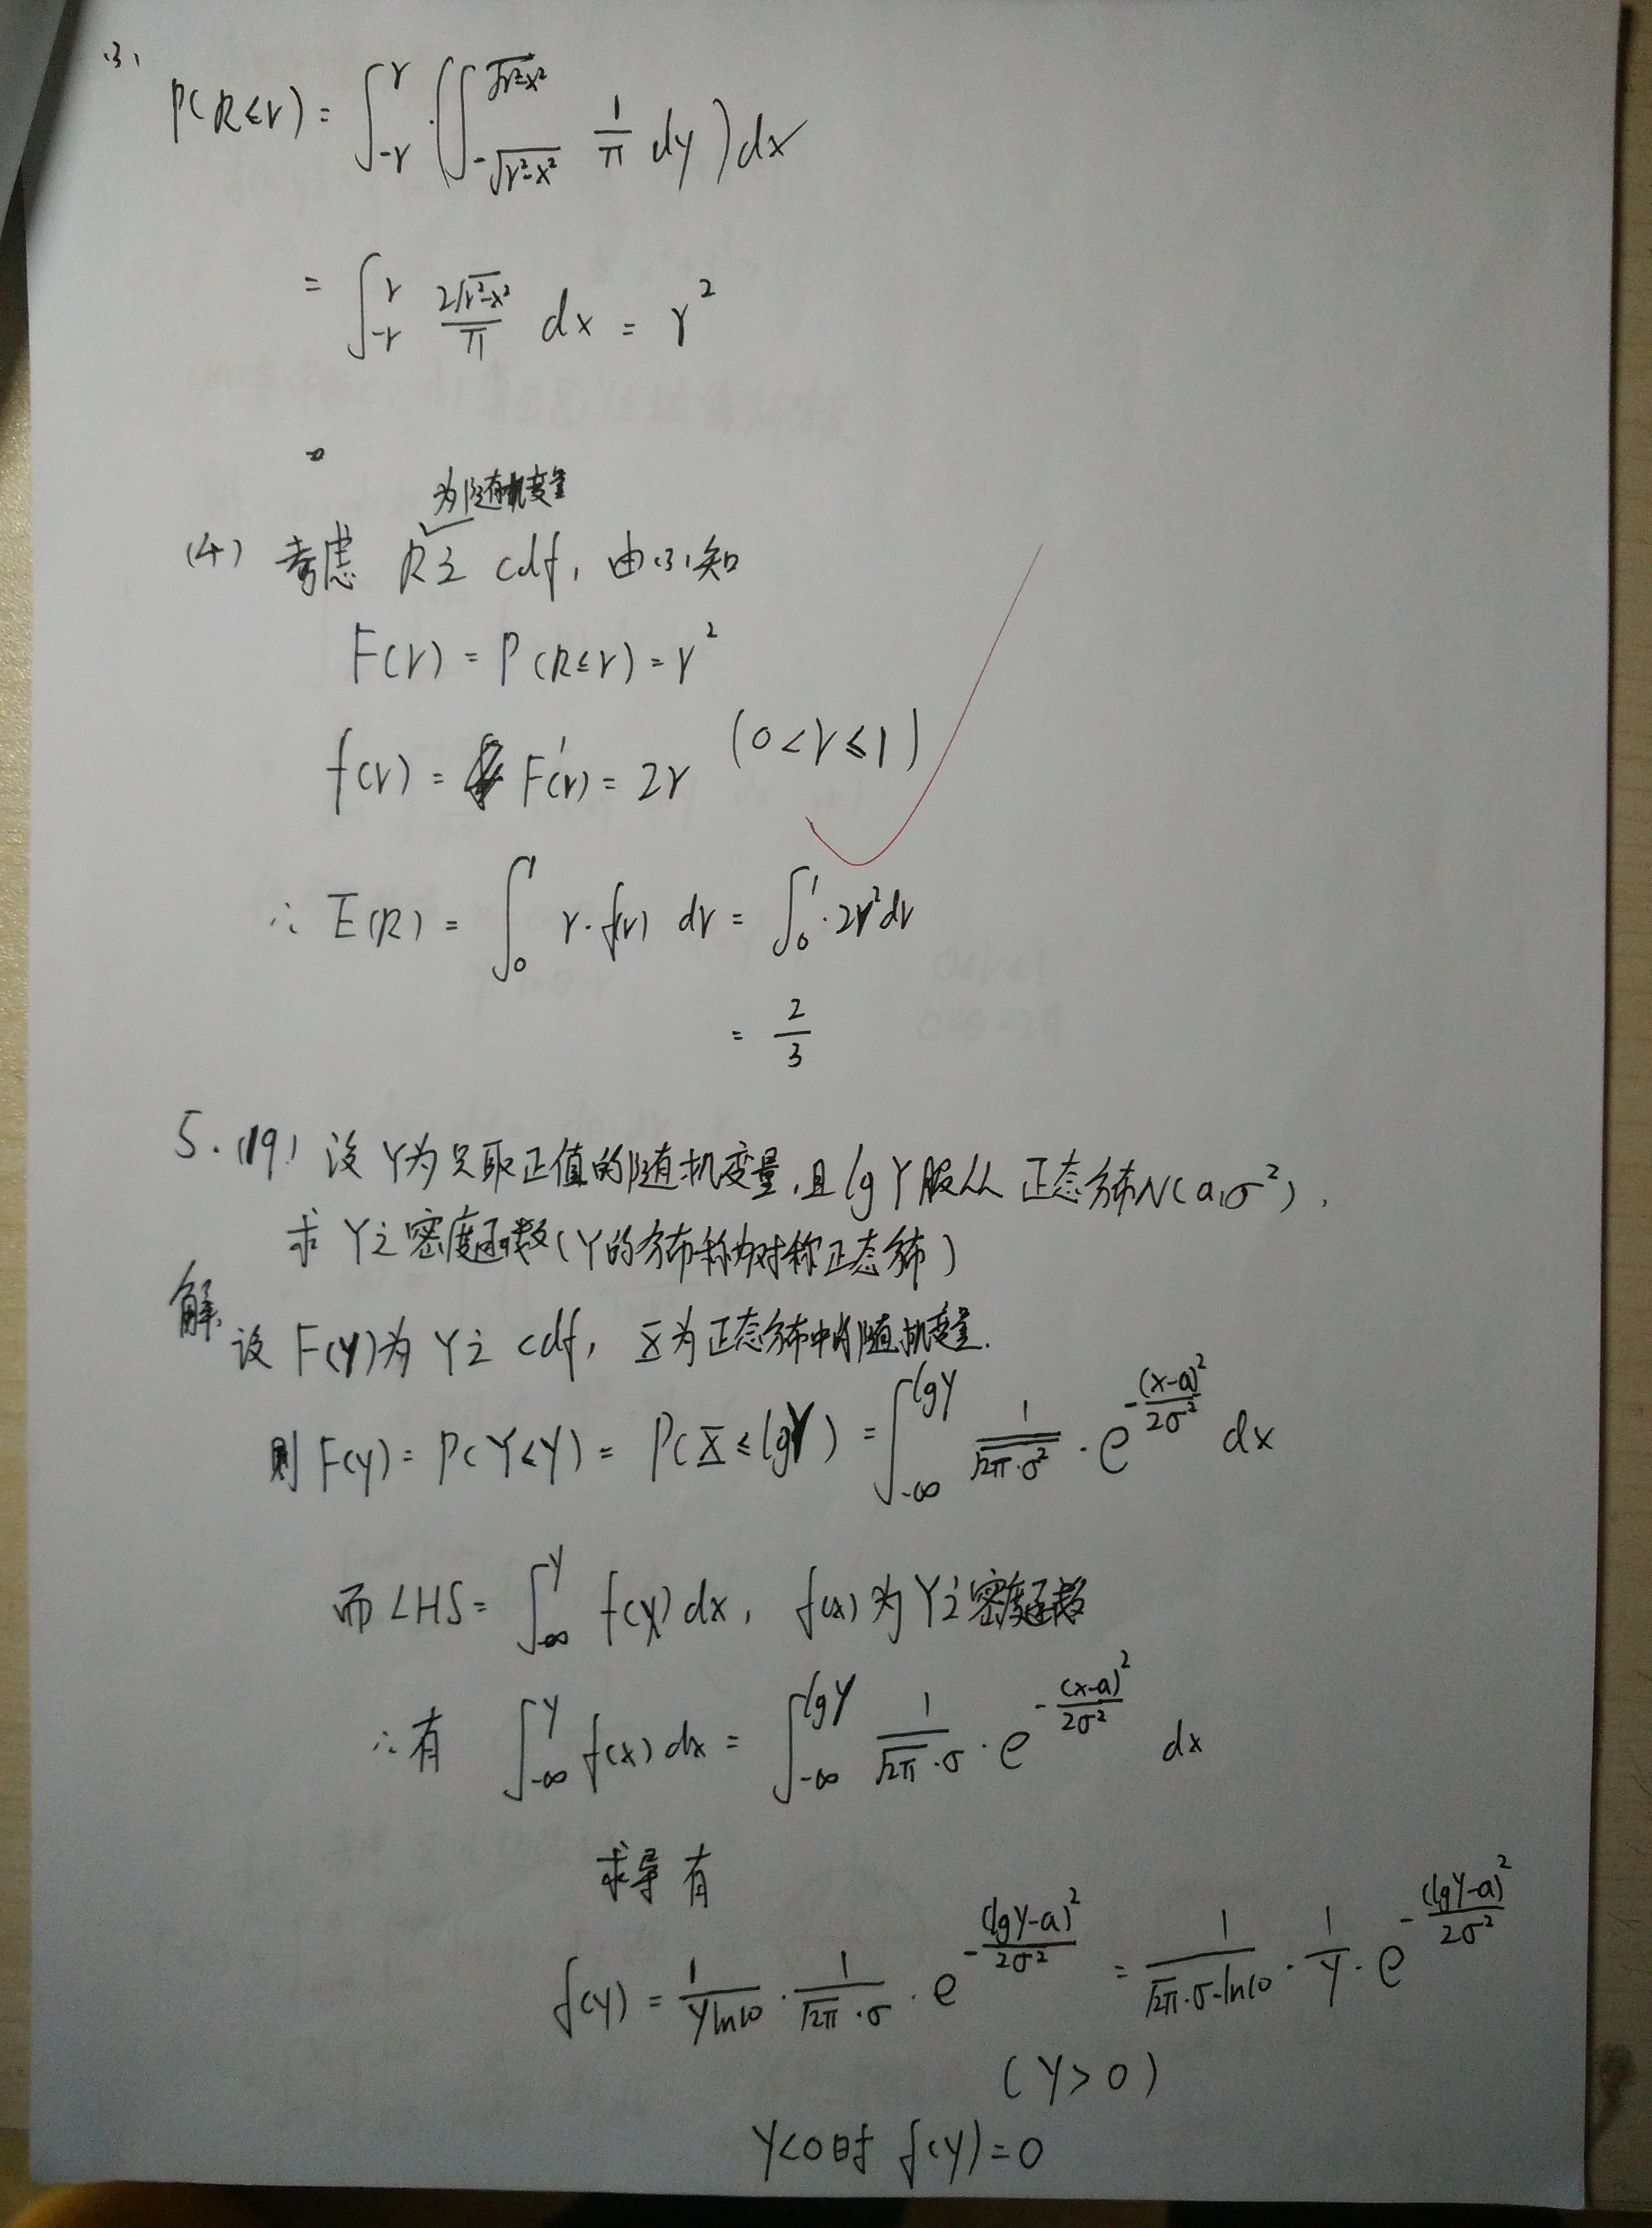 (3)
P(R≤r) = ∫_{-r}^{r} (∫_{-√(r²-x²)}^{√(r²-x²)} 1/π dy) dx
= ∫_{-r}^{r} 2√(r²-x²)/π dx = r²
为随机变量
(4) 考虑 R之 cdf, 由(3)知
F(r) = P(R≤r) = r²
f(r) = F'(r) = 2r (0<r≤1)
∴ E(R) = ∫_0^1 r·f(r) dr = ∫_0^1 2r²dr
= 2/3
5.(19) 设Y为只取正值的随机变量,且lgY服从正态分布N(a,σ²),
求Y之密度函数(Y的分布称为对称正态分布)
解
设F(y)为Y之cdf, X为正态分布中的随机变量.
则F(y) = P(Y<y) = P(X≤lgY) = ∫_{-∞}^{lgy} 1/√(2π·σ²) · e^{-(x-a)²/2σ²} dx
而LHS = ∫_{-∞}^{y} f(x) dx, f(x)为Y之密度函数
∴有 ∫_{-∞}^{y} f(x) dx = ∫_{-∞}^{lgy} 1/(√2π·σ) · e^{-(x-a)²/2σ²} dx
求导有
f(y) = 1/(yln10) · 1/(√2π·σ) · e^{-(lgy-a)²/2σ²} = 1/(√2π·σ·ln10) · 1/y · e^{-(lgy-a)²/2σ²}
(y>0)
y<0时 f(y)=0